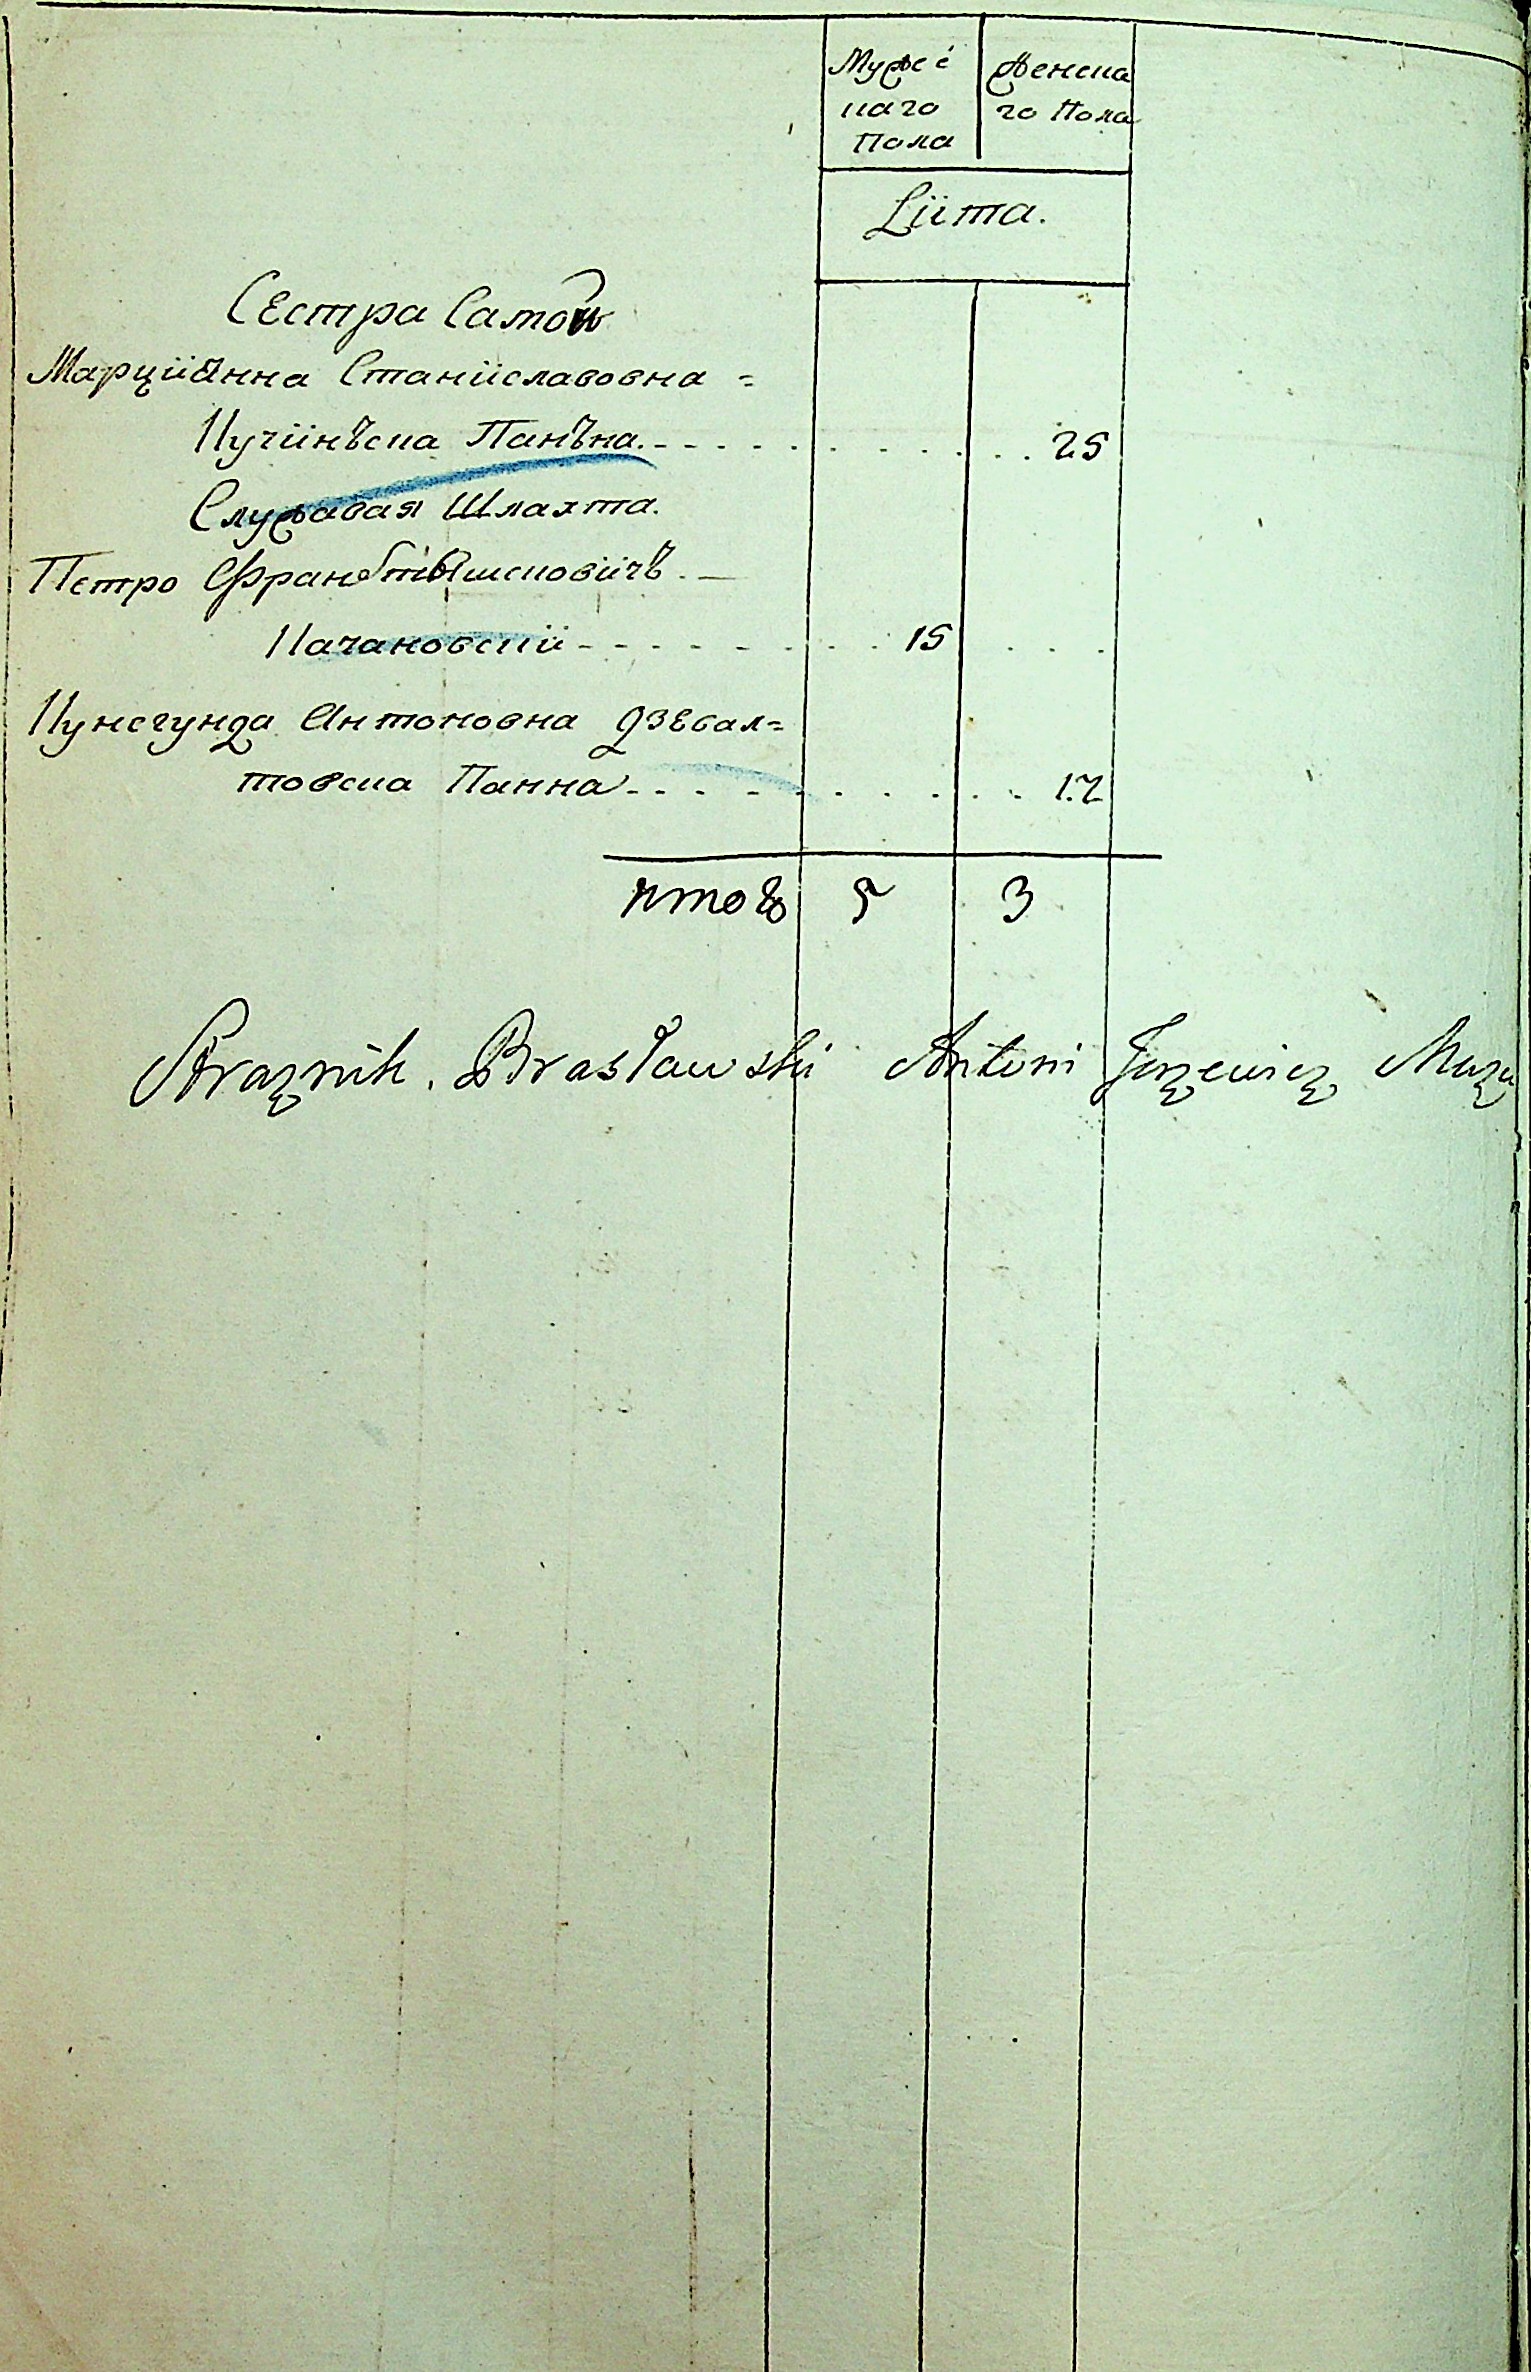 Мужес
каго
Пола
Женска
го Пола
Лiiта.
Сестра Самой
Марцiiанна Станiiславовна =
Кучiiнъска Панъна. 25
Служавая Шляхта.
Петро Францышковiiчъ
Качановскii 15
Кунегунда Антоновна Дзевал=
товска Панна 17
Итого 5 3
Straznik Brasławski Antoni Jerzewicz